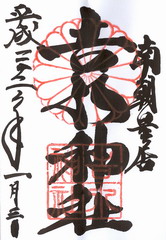 南朝皇居
吉水神社
平成 年一月三日